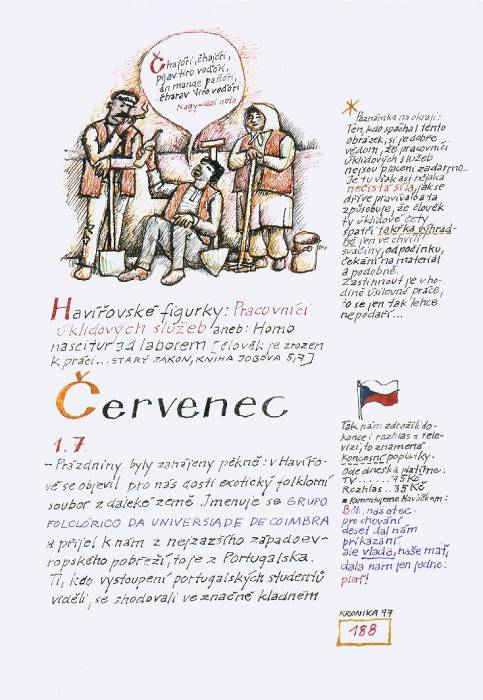 Čhajóri, čhajóri,
pijav tiro voďóri,
an mange paňóri,
čharav tiro voďóri
Nagy-idai nóta
Poznámka na okraji:
Ten, kdo spáchal tento
obrázek, si je dobře
vědom, že pracovníci
úklidových služeb
nejsou placeni zadarmo..
Je tu však asi nějaká
nečistá síla, jak se
dříve pravívalo a ta
způsobuje, že člověk
ty úklidové čety
spatří takřka výhrad-
ně jen ve chvíli
svačiny, odpočinku,
čekání na materiál
a podobně.
Zastihnout je v ho-
dině úsilovné práce,
to se jen tak lehce
nepodaří...
Havířovské figurky: Pracovníci
úklidových služeb aneb: Homo
nascitur ad laborem [člověk je zrozen
k práci... STARÝ ZÁKON, KNIHA JOBOVA 5,7]
Červenec
1.7.
– Prázdniny byly zahájeny pěkně: v Havířo-
vě se objevil pro nás dosti exotický folklorní
soubor z daleké země. Jmenuje se GRUPO
FOLCLÓRICO DA UNIVERSIADE DE COIMBRA
a přijel k nám z nejzazšího západoev-
ropského pobřeží, to je z Portugalska.
Ti, kdo vystoupení portugalských studentů
viděli, se shodovali ve značně kladném
Tak nám zdražili do-
konce i rozhlas a tele-
vizi, to znamená
koncesní poplatky.
Ode dneška platíme:
TV...... 75 Kč
Rozhlas.. 35 Kč
a komentujeme Havlíčkem:
Bůh, náš otec,
pro chování
deset dal nám
přikázání.
ale vláda, naše máť,
dala nám jen jedno:
plať!
KRONIKA 97
188